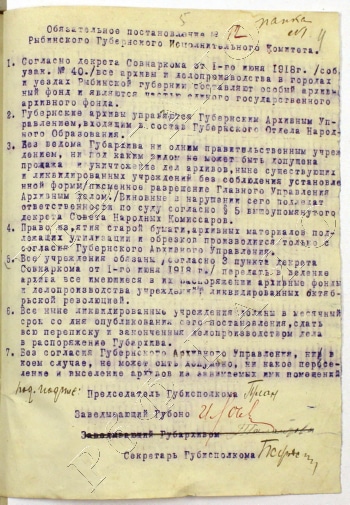 5
Обязательное постановление № 12
Рыбинского Губернского Исполнительного Комитета.
1. Согласно декрета Совнаркома от 1-го июня 1918г. /соб.
узак. № 40./ все архивы и делопроизводства в городах
и уездах Рыбинской губернии составляют особый архив
ный фонд и являются частью единого государственного
архивного фонда.
2. Губернские архивы управляются Губернским Архивным Уп-
равлением, входящим в состав Губернского Отдела Народ-
ного Образования.
3. Без ведома Губархива ни одним правительственным учреж
дением, ни под каким видом не может быть допущена
продажа и уничтожение дел архивов, ныне существующих
и ликвидированных учреждений без соблюдения установлен
ной форми/письменное разрешение Главного Управления
Архивным Делом/. Виновные в нарушении сего подлежат
ответственности по суду согласно § 5 вышеупомянутого
декрета Совета Народных Комиссаров.
4. Право из"ятия старой бумаги, архивных материалов под-
лежащих утилизации и образков производится только с
согласия Губернского Архивного Управления.
5. Все учреждения обязаны /согласно 3 пункта декрета
Совнаркома от 1-го июня 1918 го/ передать в ведение
архива все имеющиеся в их распоряжении архивные фонды
и делопроизводства учреждений ликвидированных октяб-
рьской революцией.
6. Все ныне ликвидированные учреждения должны в месячный
срок со дня опубликования сего постановления, сдать
всю переписку и законченные делопроизводством дела
в распоряжение Губархива.
7. Без согласия Губернского Архивного Управления, ни в
коем случае, не может быть допущено, ни какое пересе-
ление и выселение архивов из занимаемых ими помещений
Председатель Губисполкома
Заведывающий Губоно
Заведывающий Губархивом
Секретарь Губисполкома